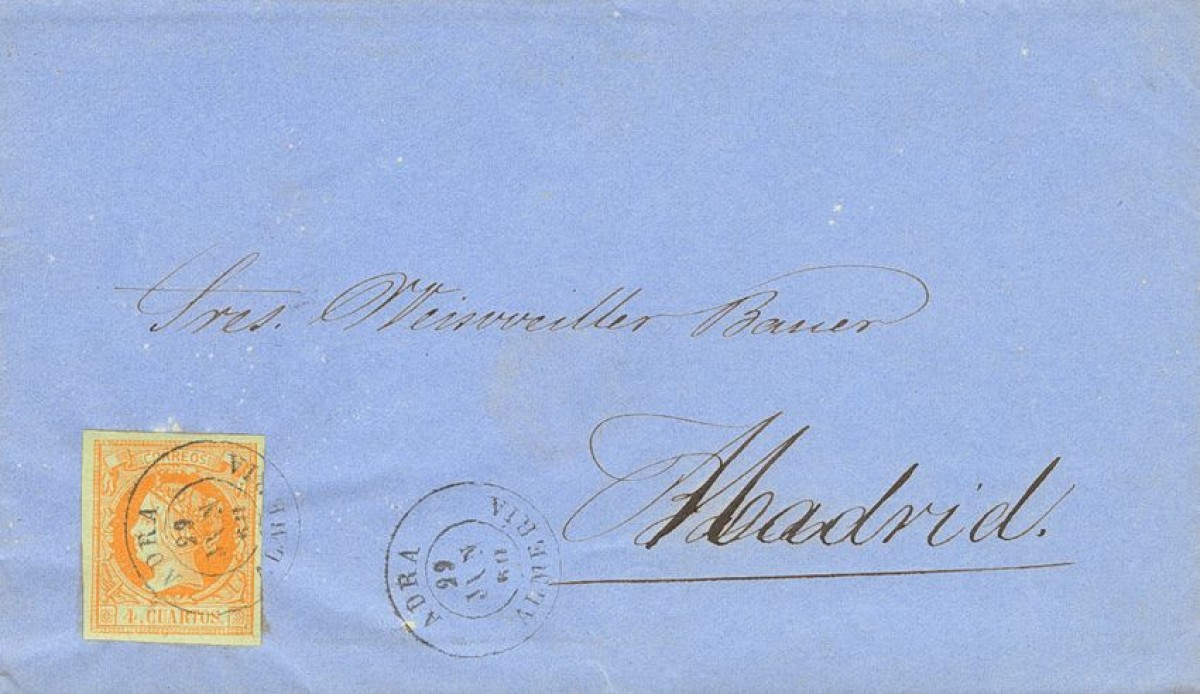 Sres. Weisweiller Bauer
Madrid.
CORREOS
4 CUARTOS
ADRA
29
ADRA
29
JUN
60
ALMERIA